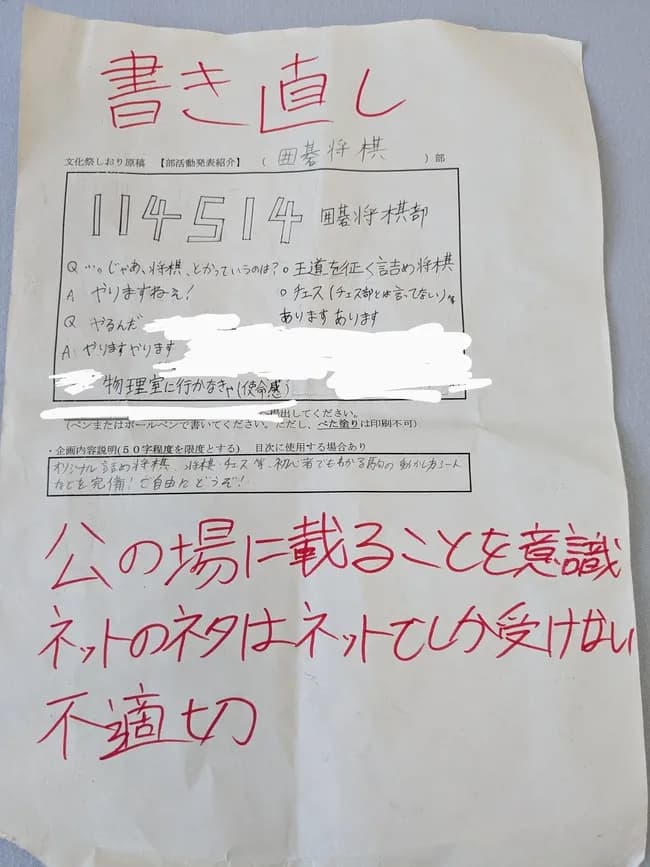 書き直し
文化祭しおり原稿 【部活動発表紹介】 ( 囲碁将棋 )部
114514 囲碁将棋部
Q …。じゃあ、将棋、とかっていうのは?
A やりますねえ!
Q やるんだ
A: やりますやります
○王道を征く詰め将棋
○チェス(チェス部とは言ってない)等
あります あります
物理室に行かなきゃ(使命感)
提出してください。
(ペンまたはボールペンで書いてください。ただし、べた塗りは印刷不可)
・企画内容説明(50字程度を限度とする) 目次に使用する場合あり
オリジナル詰め将棋、将棋・チェス等、初心者でもわかる駒の動かし方シート
などを完備!ご自由にどうぞ!
公の場に載ることを意識
ネットのネタはネットでしか受けない
不適切